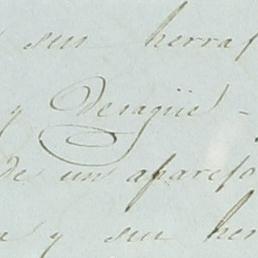 y su herraj
y Desagüe -
de un aparejo
a y su her